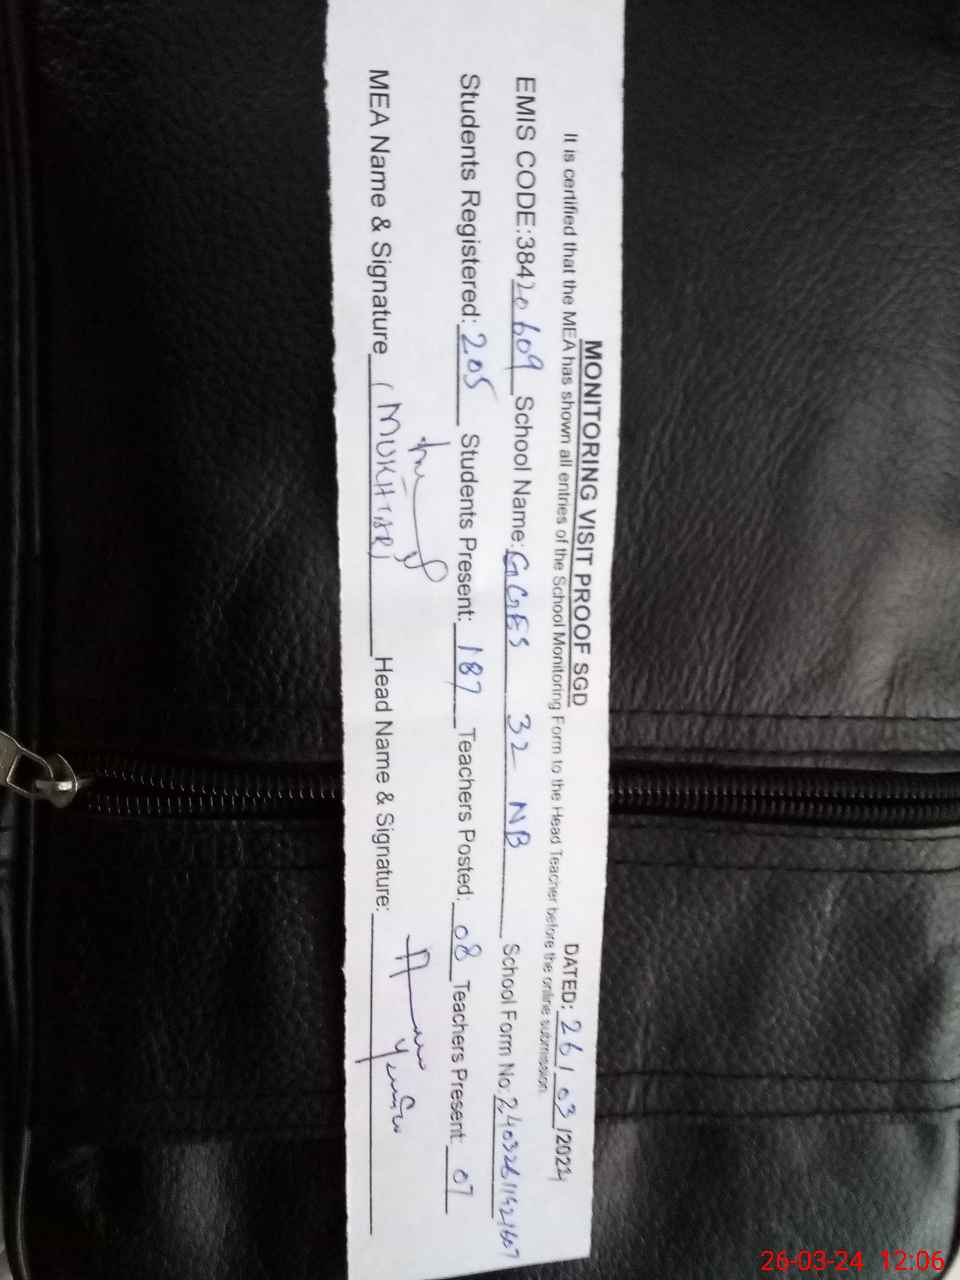 MONITORING VISIT PROOF SGD DATED: 26/03/2024
It is certified that the MEA has shown all entries of the School Monitoring Form to the Head Teacher before the online submission.
EMIS CODE:38420609 School Name: GGES 32 NB School Form No:
Students Registered: 205 Students Present: 187 Teachers Posted: 08 Teachers Present: 07
MEA Name & Signature (MUKHTAR) Head Name & Signature:
26-03-24 12:06